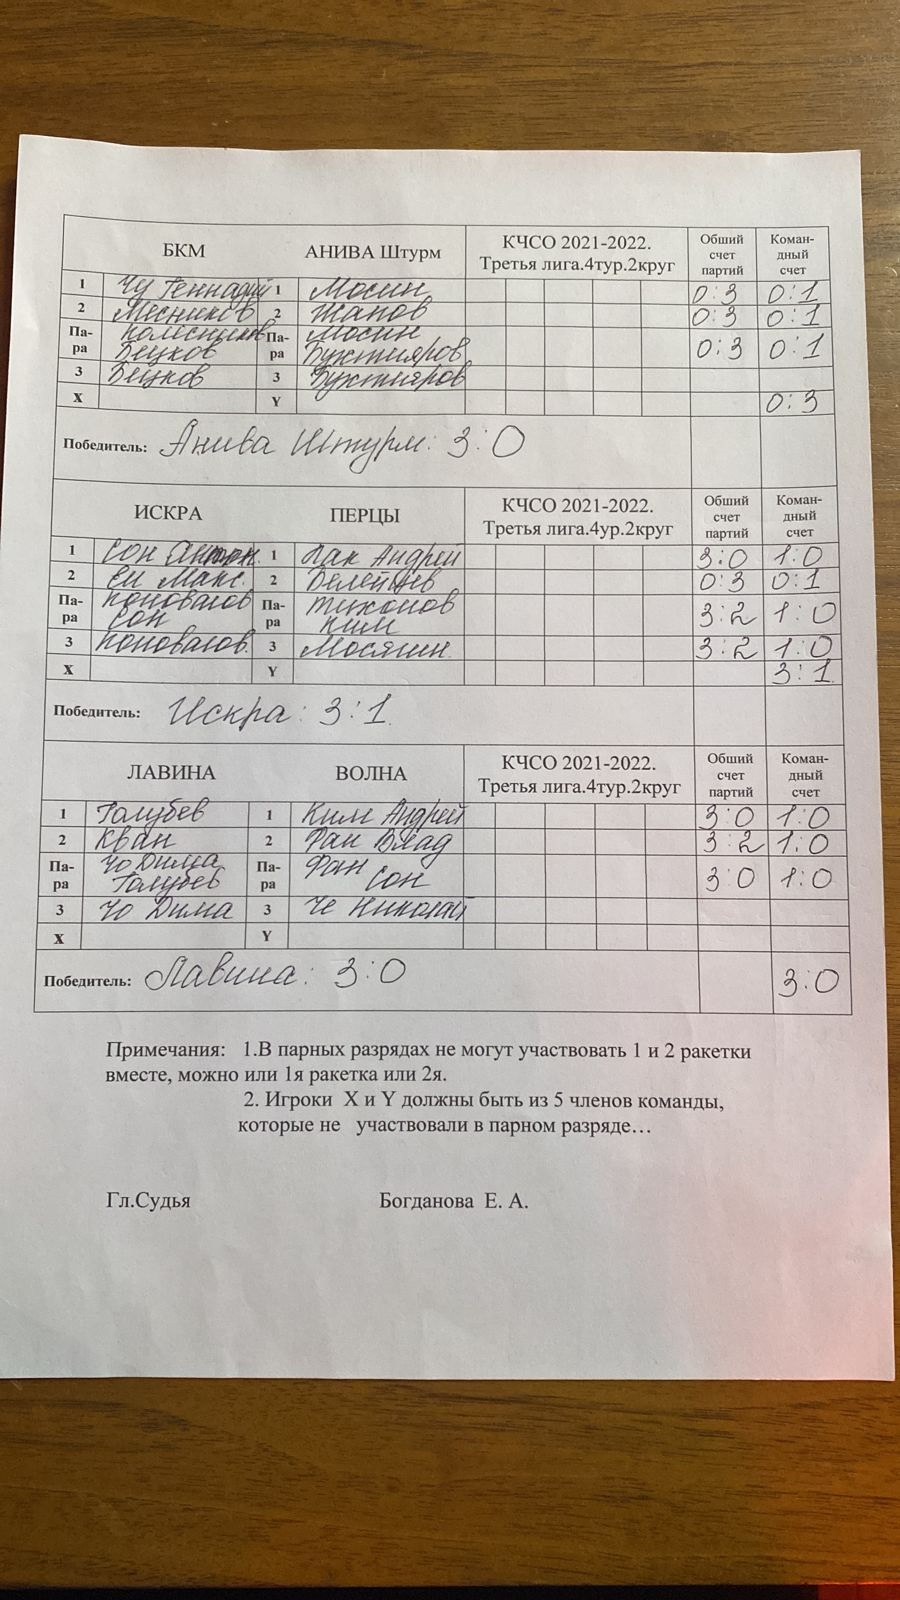 БКМ АНИВА Штурм КЧСО 2021-2022. Третья лига.4тур.2круг Обший счет партий Коман-дный счет
1 Чу Геннадий 1 Мосин 0:3 0:1
2 Месников 2 Жапов 0:3 0:1
Па-ра Колесников Бецков Па-ра Мосин Бухтияров 0:3 0:1
3 Бецков 3 Бухтияров
X Y 0:3
Победитель: Анива Штурм: 3:0
ИСКРА ПЕРЦЫ КЧСО 2021-2022. Третья лига.4ур.2круг Обший счет партий Коман-дный счет
1 Сон Антон. 1 Пак Андрей 3:0 1:0
2 Ен Макс. 2 0:3 0:1
Па-ра Коновалов Сон Па-ра Тихонов Ким 3:2 1:0
3 Коновалов. 3 Мосягин. 3:2 1:0
X Y 3:1
Победитель: Искра: 3:1.
ЛАВИНА ВОЛНА КЧСО 2021-2022. Третья лига.4тур.2круг Обший счет партий Коман-дный счет
1 Голубев 1 Ким Андрей 3:0 1:0
2 Кван 2 Фан Влад 3:2 1:0
Па-ра Чо Дима Голубев Па-ра Фан Сон 3:0 1:0
3 Чо Дима 3 Че Николай
X Y
Победитель: Лавина: 3:0 3:0
Примечания: 1.В парных разрядах не могут участвовать 1 и 2 ракетки
вместе, можно или 1я ракетка или 2я.
2. Игроки X и Y должны быть из 5 членов команды,
которые не участвовали в парном разряде…
Гл.Судья Богданова Е. А.